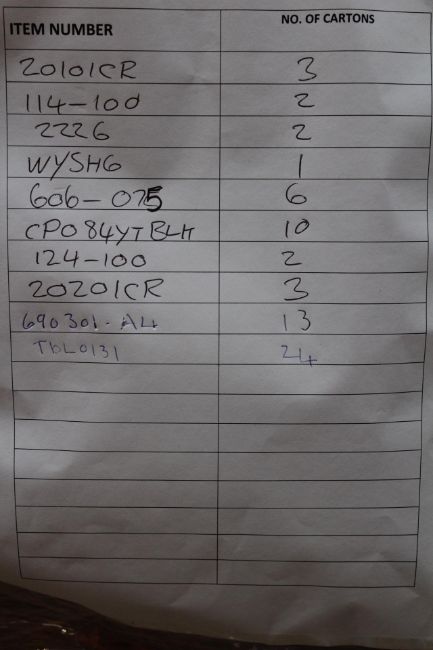 ITEM NUMBER NO. OF CARTONS
20101CR 3
114-100 2
2226 2
WYSHG 1
606-075 6
CPO84YTBLK 10
124-100 2
20201CR 3
690301-A4 13
TBL0131 24